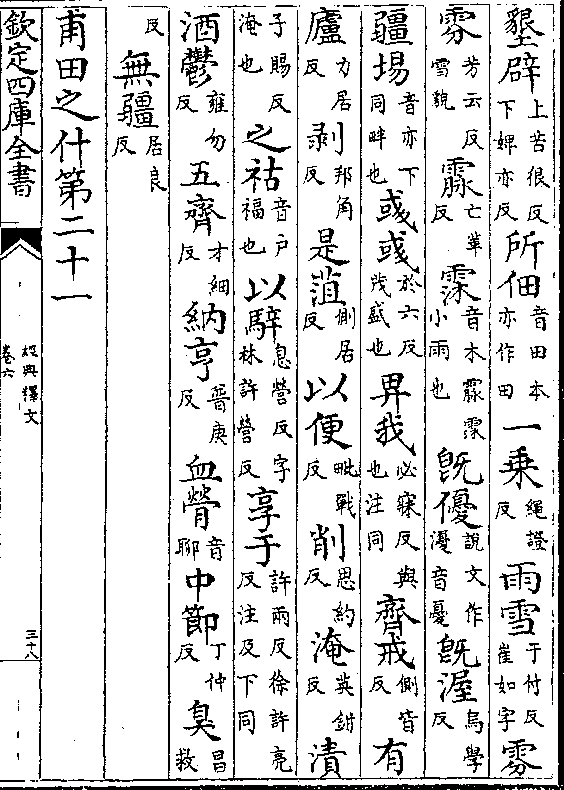 墾辟上苦很反下婢亦反所佃音田本亦作田一乗繩證反雨雪于付反崔如字雰
雰芳云反雪貌霢亡革反霂音木霢霂小雨也既優說文作瀀音憂既渥烏學反
疆埸音亦下同畔也彧彧於六反茂盛也畀我必寐反與也注同齊戒側皆反有
廬力居反剥邦角反是菹側居反以便毗戰反削思約反淹英鉗反漬
子賜反淹也之祜音戸福也以騂息營反字林許營反享于許兩反徐許亮反注及下同
酒鬱雍勿反五齊才細反納亨普庚反血膋音聊中節丁仲反臭昌救
反無疆居良反
甫田之什第二十一
欽定四庫全書
經典釋文
卷六
三十八